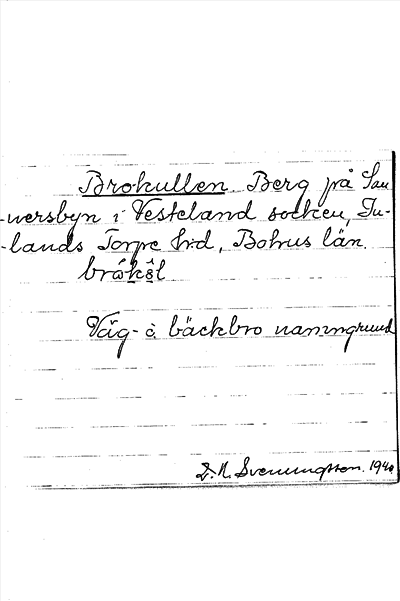 Brokullen. Berg på San-
nersbyn i Vesteland socken, In-
-lands Torpe hrd, Bohus län.
bråkøl
Väg- o. bäckbro namngrund
E. N. Svenungsson. 1940